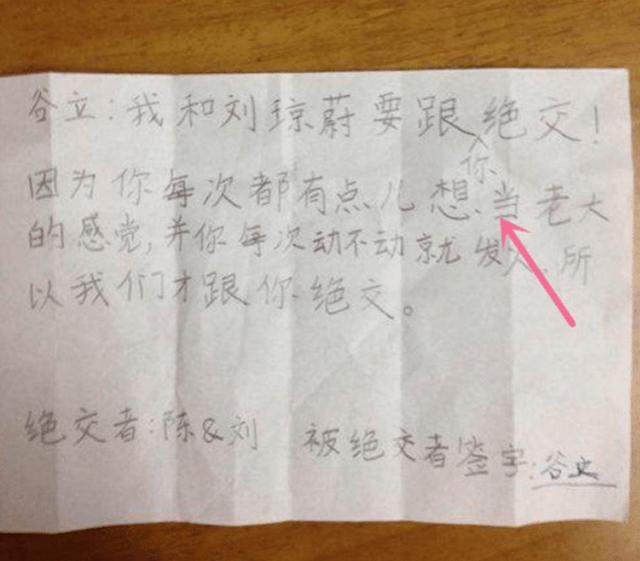 谷立：我和刘琼蔚要跟你绝交！
因为你每次都有点儿想当老大
的感觉，并你每次动不动就发火，所
以我们才跟你绝交。
绝交者：陈&刘 被绝交者签字：谷立